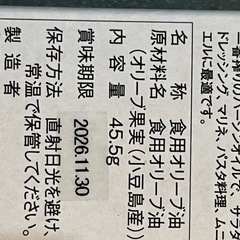 一番搾りのバージンオイルで、サラダ
ドレッシング、マリネ、パスタ料理、ムニ
エルに最適です。
名 称 食用オリーブ油
原材料名 食用オリーブ油
(オリーブ果実(小豆島産))
内容量 45.5g
賞味期限 2026.11.30
保存方法 直射日光を避け、
常温で保管してください。
製造者